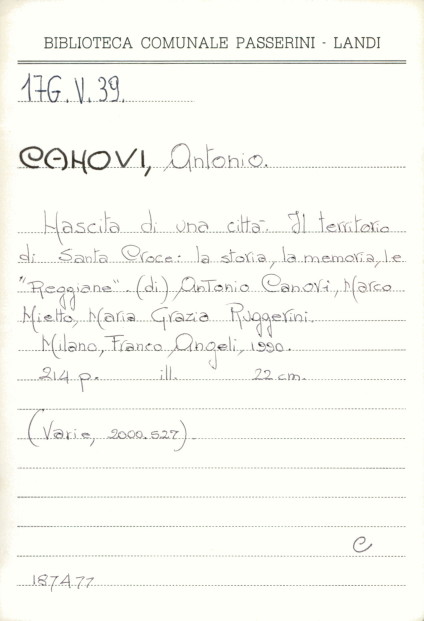 BIBLIOTECA COMUNALE PASSERINI - LANDI
17G.V.39.
CANOVI, Antonio.
Nascita di una città. Il territorio
di Santa Croce: la storia, la memoria, le
"Reggiane". (di) Antonio Canovi, Marco
Mietto, Maria Grazia Ruggerini.
Milano, Franco Angeli, 1990.
214 p. ill. 22 cm.
(Varie, 2000.527)
C
187477